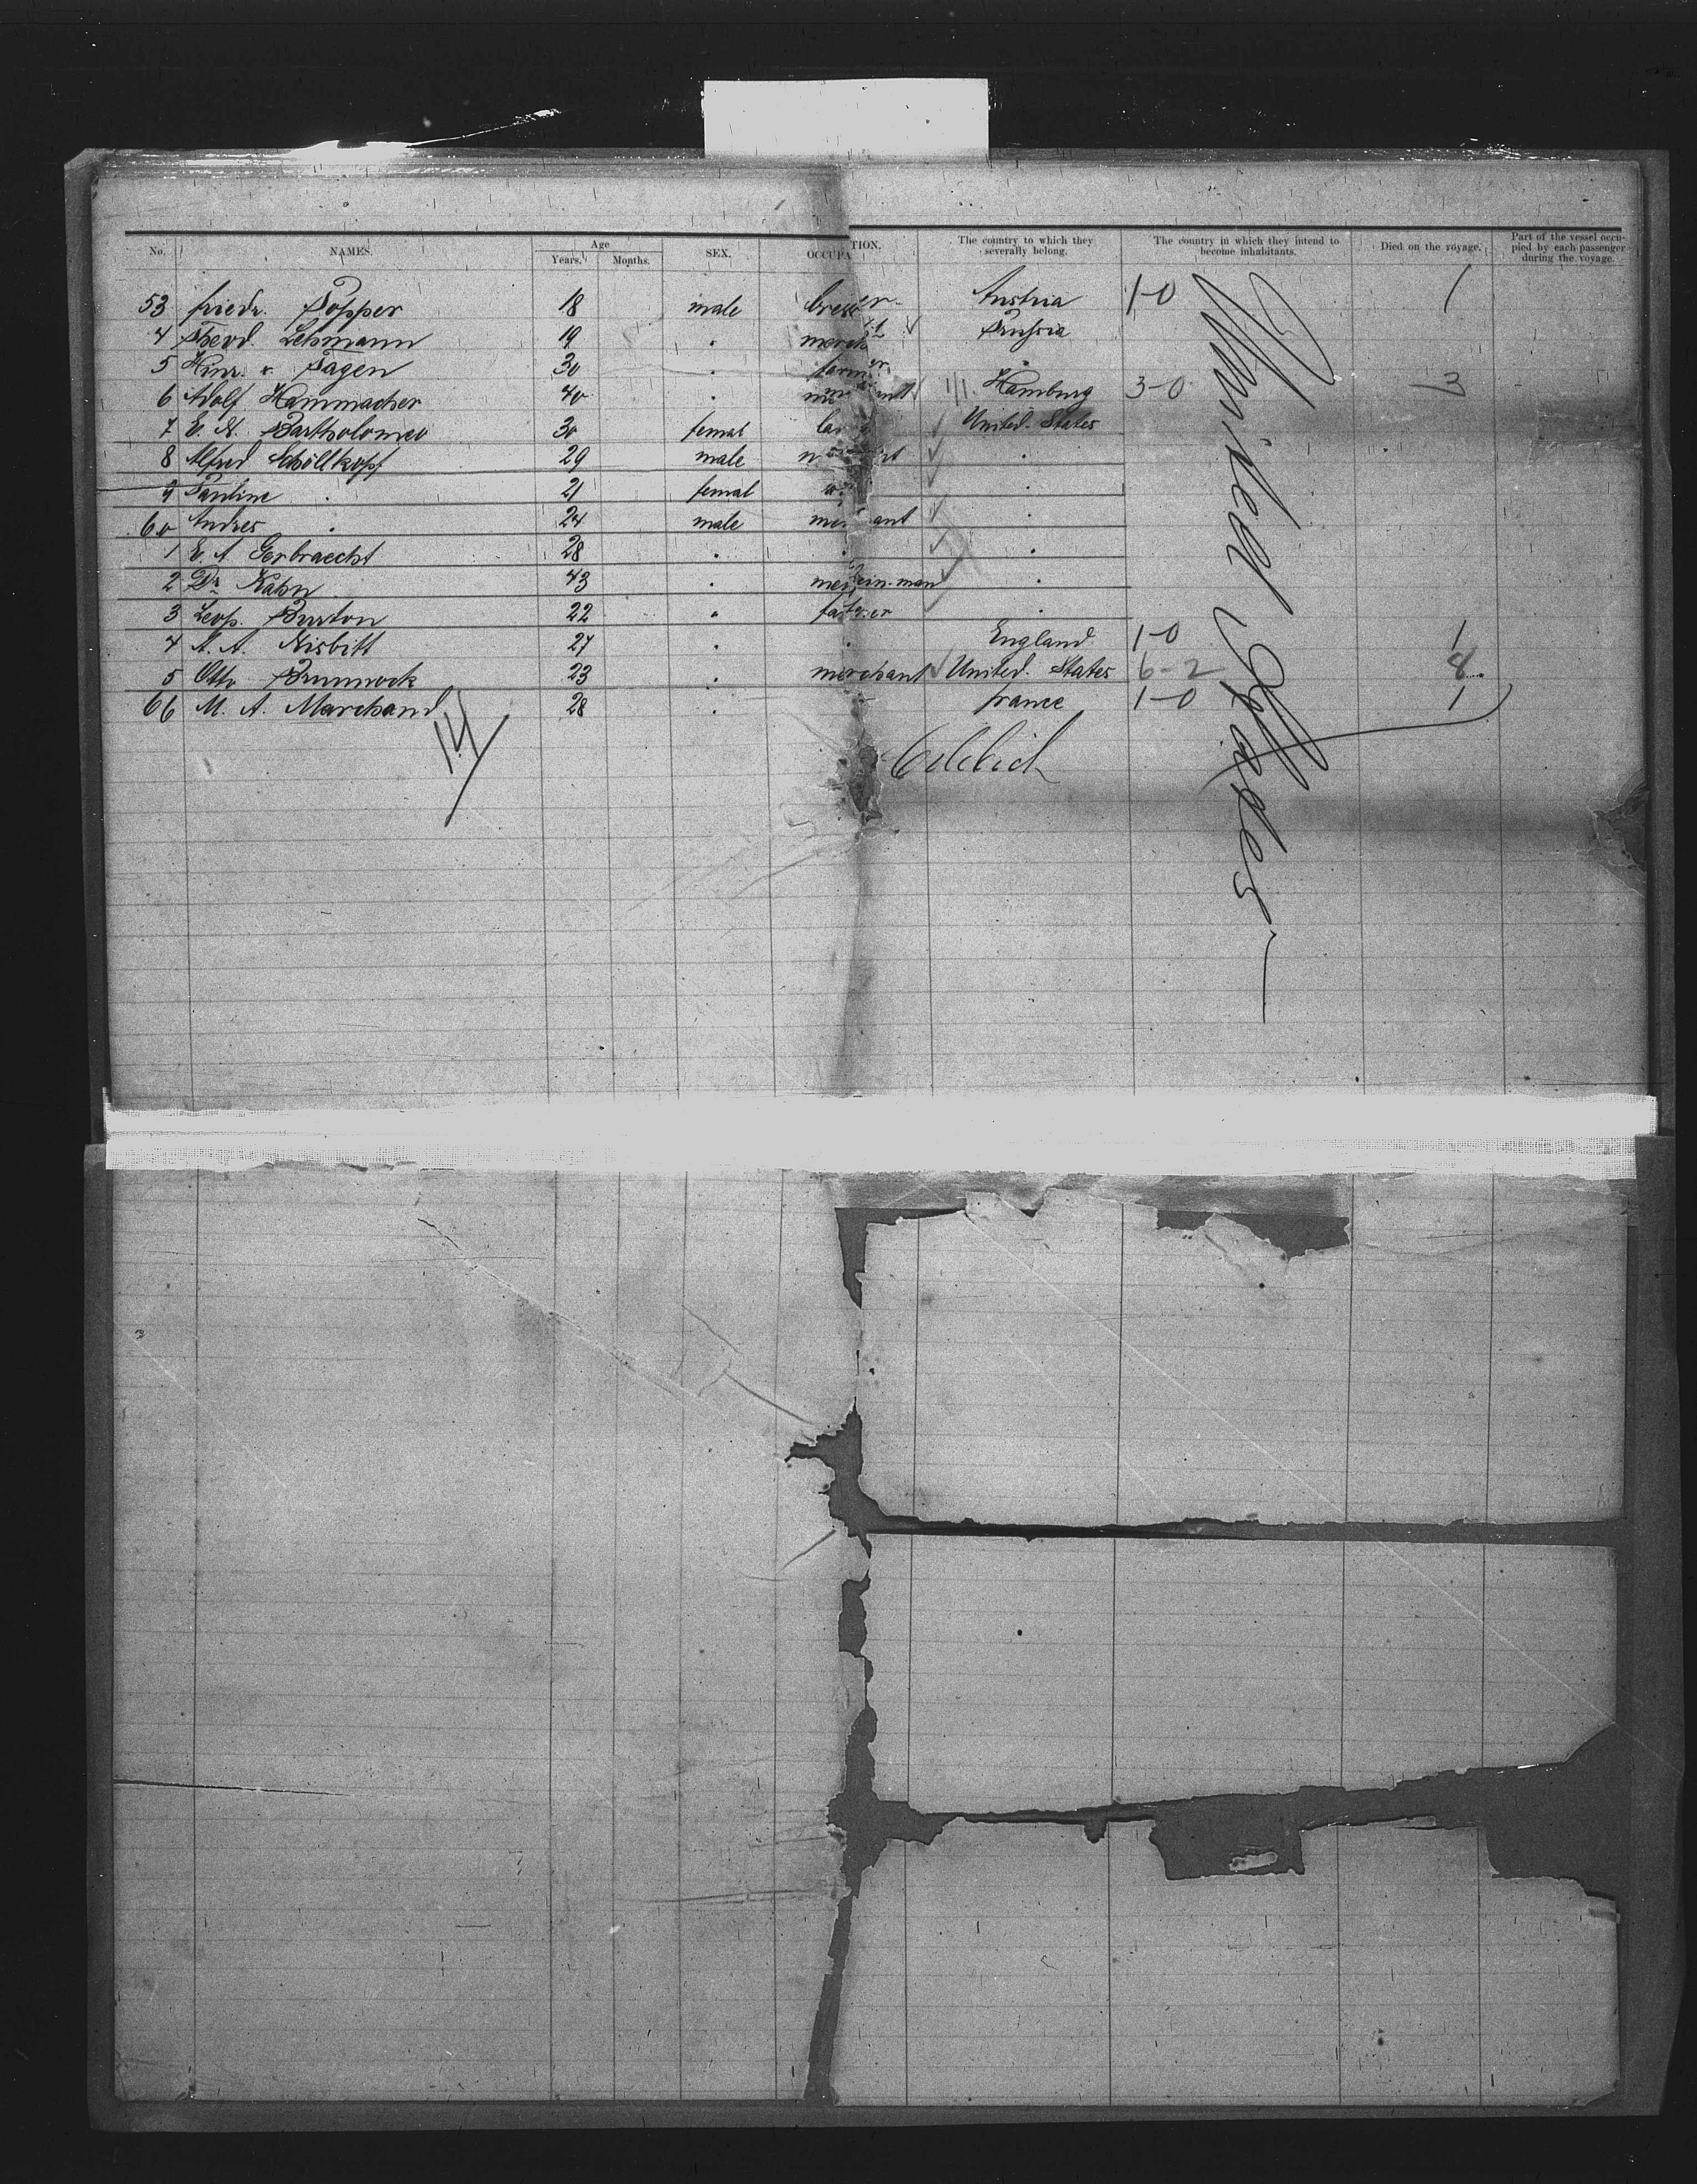 No. NAMES. Age Years. Months. SEX. OCCUPATION. The country to which they severally belong. The country in which they intend to become inhabitants. Died on the voyage. Part of the vessel occupied by each passenger during the voyage.
53 friedr. Popper 18 male Austria 1-0 1
4 Theod. Lehmann 19 " Prussia
5 Hinr. v. Hagen 30 " farmer "
6 Adolf Hammacher 40 " Hamburg 3-0 3
7 E. N. Bartholomew 30 femal United States
8 Alfred Schöllkopf 29 male "
9 Pauline " 21 femal "
60 Andres " 24 male "
1 E. A. Gerbraecht 28 " " "
2 Dr Kahn 43 " "
3 Leop. Burton 22 " "
4 A. A. Nisbitt 27 " " England 1-0 1
5 Otto Brunnock 23 " merchant United States 6-2 8
66 M. A. Marchand 28 " france 1-0 1
14
United States